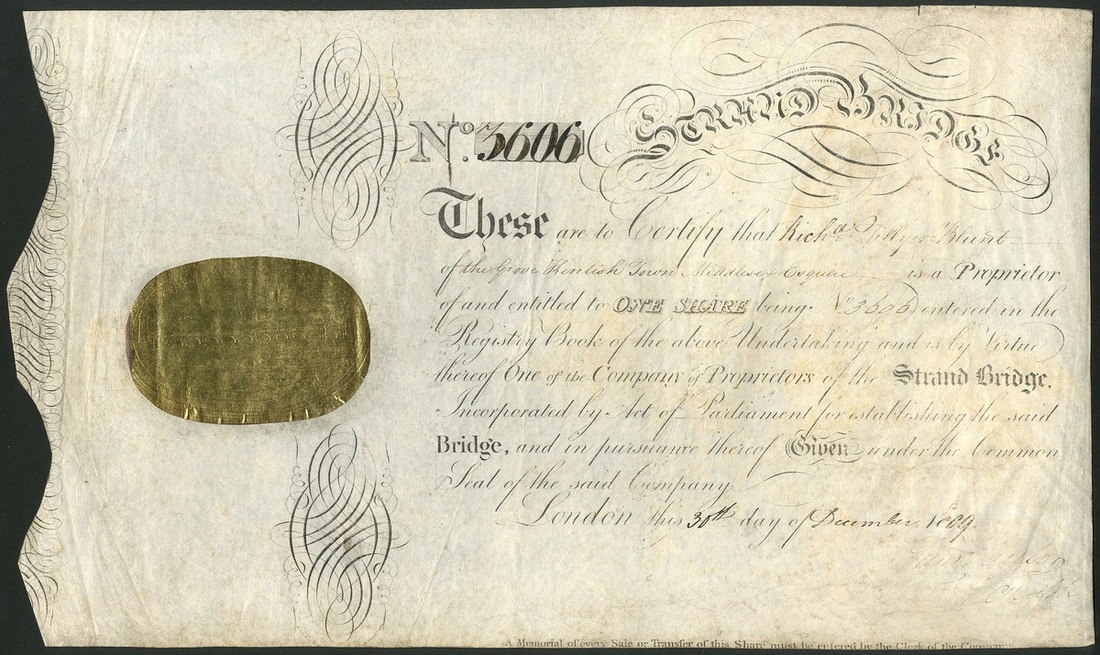 STRAND BRIDGE
No. 3606
These are to Certify that Richd. Blunt
of the Grove Kentish Town Middlesex Esquire is a Proprietor
of and entitled to ONE SHARE being No 3606 entered in the
Registry Book of the above Undertaking and is by Virtue
thereof One of the Company of Proprietors of the Strand Bridge,
Incorporated by Act of Parliament for establishing the said
Bridge, and in pursuance thereof Given under the Common
Seal of the said Company
London this 30th day of December 1809
A Memorial of every Sale or Transfer of this Share must be entered by the Clerk of the Company